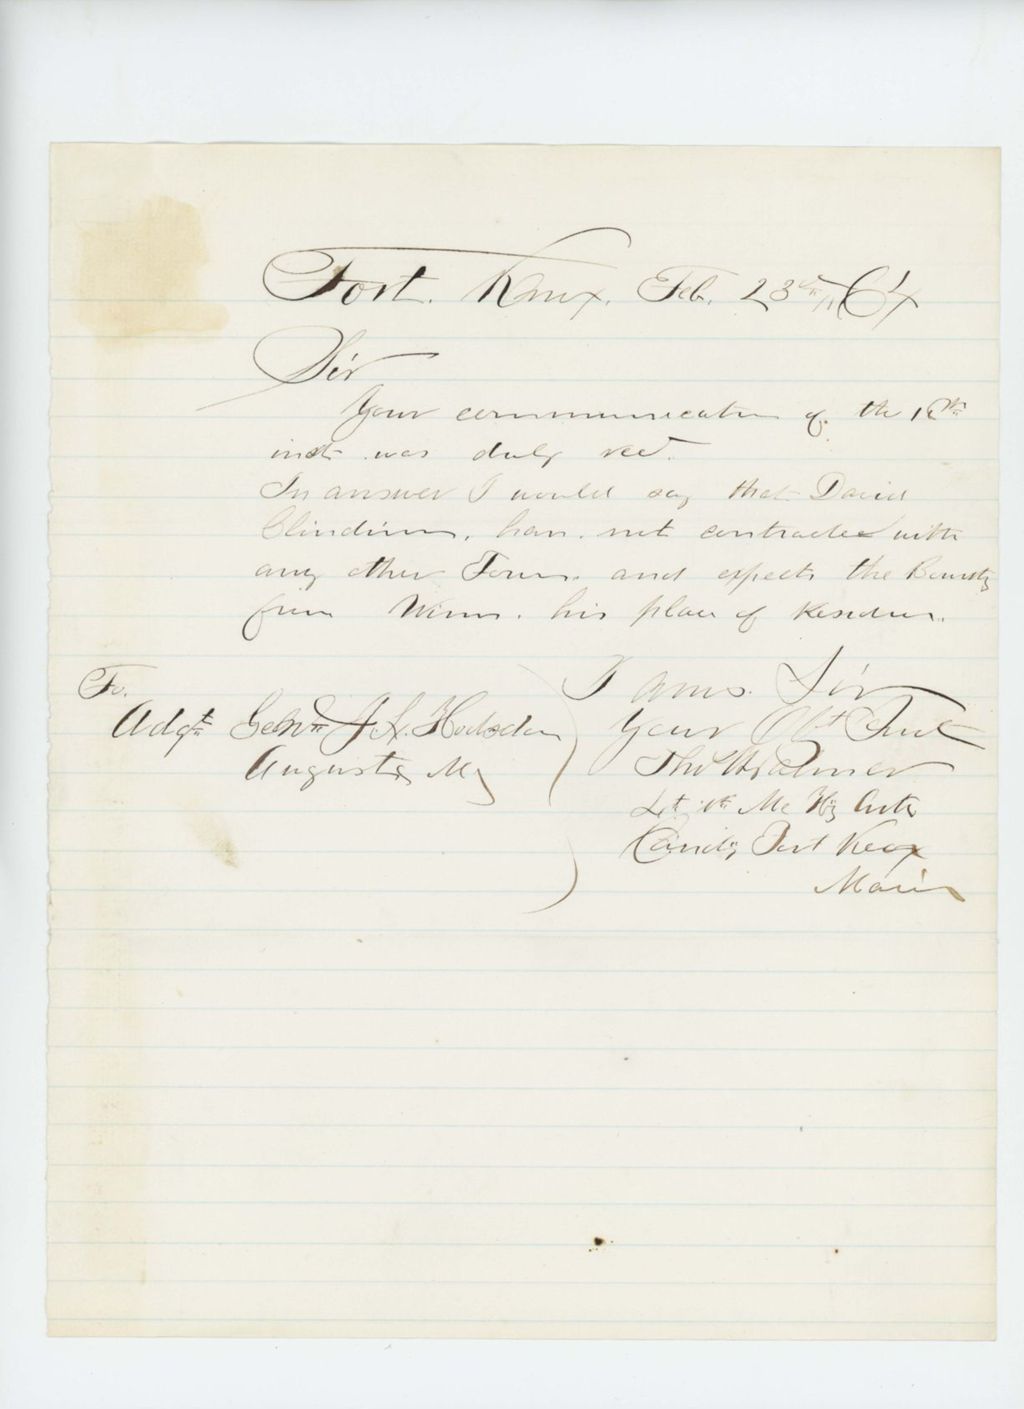 Fort. Knox. Feb. 23rd /64
Sir
Your communication of the 18th
inst was duly recd.
In answer I would say that David
has. not contracted with
any other Town. and expects the Bounty
from Winn. his place of
I am. Sir
Your Obt Svt
Thos H Palmer
Lt Me Hy Arty
Comdg Fort Knox
Maine
To.
Adgt Genrl J. L. Hodsdon
Augusta Me